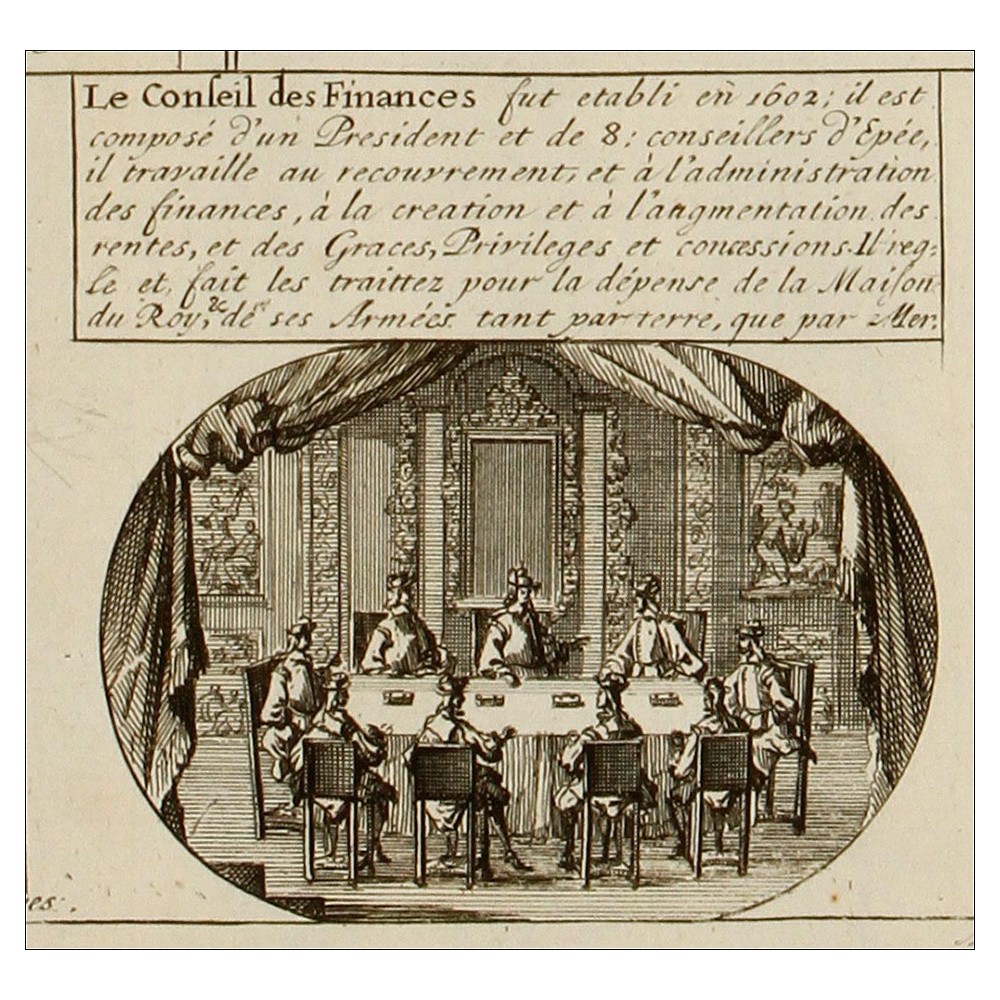 Le Conſeil des Finances fut etabli en 1602; il est
composé d'un President et de 8: conseillers d'Epée,
il travaille au recouvrement, et à l'administration
des finances, à la creation et à l'augmentation des
rentes, et des Graces, Privileges et concessions. Il reg=
le et fait les traittez pour la dépense de la Maiſon
du Roy, &c de ses Armées tant par terre, que par Mer.
es.